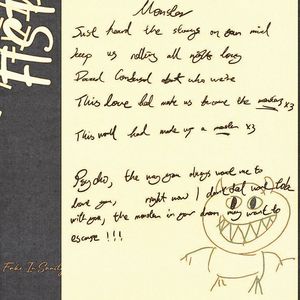 Monster
Just heard the strongs on own mind
keep us rolling all nights long
Dazed Confused about who we're
This love had make us became the monsters x3
This world had made up a monster x3
Psycho, the way you always want me to
love you, right now I don't want
with you, the monster in your dream may want to
escape !!!
Fake In Sanity